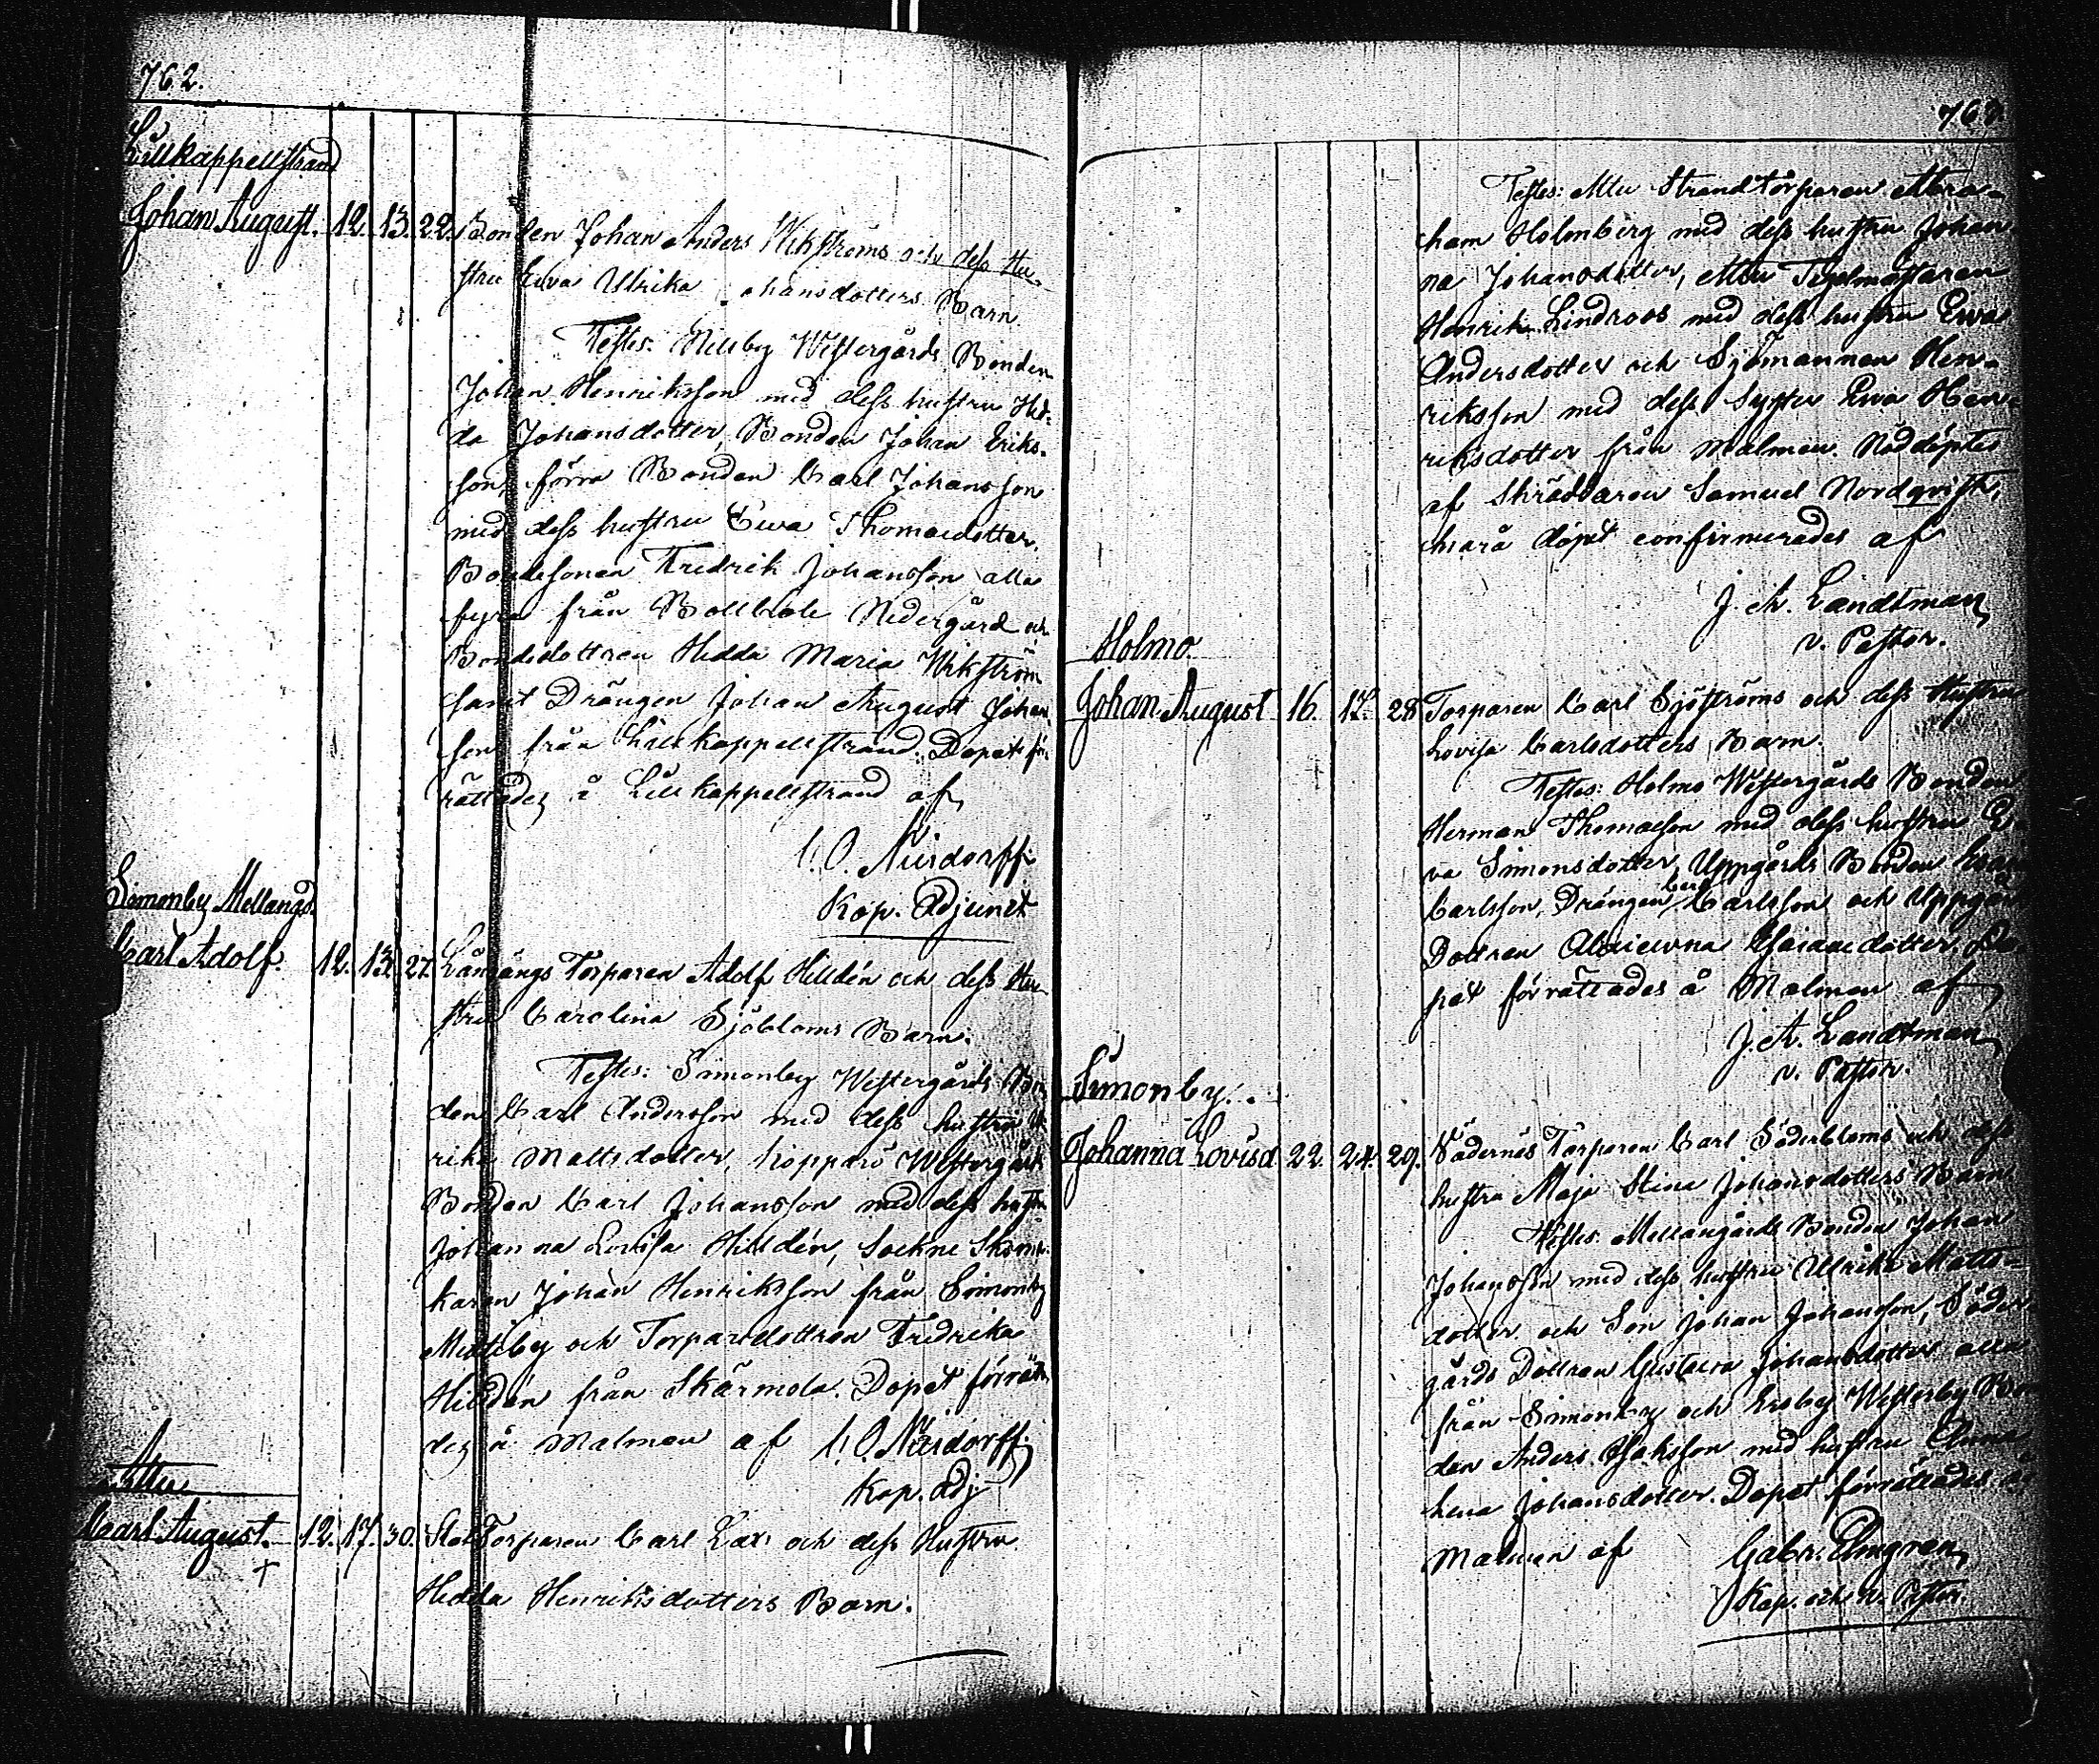 762.
Lillkappellstrand
Johan August. 12. 13. 22. Bonden Johan Anders Wikströms och dess Hu-
stru Ewa Ulrika Johansdotters Barn.
Testes: Nilsby Westergårds Bonden
Johan Henriksson med dess hustru Hed-
da Johansdotter, Bonden Johan Eriks-
son, förra Bonden Carl Johansson
med dess hustru Ewa Thomasdotter,
Bondesonen Fredrik Johansson alla
fyra från Bollböle Nedergård och
Bondedottren Hedda Maria Wikström
samt Drängen Johan August Johans
son från Lillkappellstrand. Dopet för-
rättades å Lillkappellstrand af
C. O. Neidorff.
Kap. Adjunct
Simonby Mellangd.
Carl Adolf. 12. 13. 27. Långängs Torparen Adolf Hilldén och dess Hu-
stru Carolina Sjöbloms Barn.
Testes: Simonby Westergårds Bon
den Carl Andersson med dess hustru Ul
rika Mattsdotter, Kopparö Westergårds
Bonden Carl Johansson med dess hustru
Johanna Lovisa Hilldén, Sockne Skoma-
karen Johan Henriksson från Simonby
Mellanby och Torparedottren Fredrika
Hilldén från Skärmola. Dopet förrätta
des å Malmen af C. O. Neidorff.
Kap. Adj
Attu
Carl August. 12. 17. 30. Torparen Carl Lax och dess Hustru
Hedda Henriksdotters Barn.
763.
Testes: Attu Strandtorparen Abra-
ham Holmberg med dess hustru Johan
na Johansdotter, Attu Tegelmästaren
Henrik Lindroos med dess hustru Ewa
Andersdotter och Sjömannen Hen-
riksson med dess Syster Ewa Hen
riksdotter från Malmen. Nöddöptes
af Skräddaren Samuel Nordqvist,
hvarå döpet confirmerades af
J. A. Landtman
v. Pastor.
Holmo.
Johan August 16. 17. 28. Torparen Carl Sjöströms och dess Hustru
Lovisa Carlsdotters Barn.
Testes: Holmo Westergårds Bonden
Herman Thomasson med dess hustru E-
va Simonsdotter, Uppgårds Bonden
Carlsson, Drängen Carl Carlsson och Uppgårds
Dottren Isaacsdotter. Do
pet förrättades å Malmen af
J. A. Landtman
v. Pastor.
Simonby.
Johanna Lovisa 22. 24. 29. Torparen Carl Söderbloms och dess
hustru Maja Stina Johansdotters Barn.
Testes: Mellangårds Bonden Johan
Johansson med dess hustru Ulrika Matts-
dotter och Son Johan Johansson, Söder
gårds Dottren Gustava Johansdotter alla
från Simonby och Ersby Westerby Bon
den Anders Isaksson med hustru Anna
Lena Johansdotter. Dopet förrättades å
Malmen af Gabr. Elmgren,
Kap. och v. Pastor.